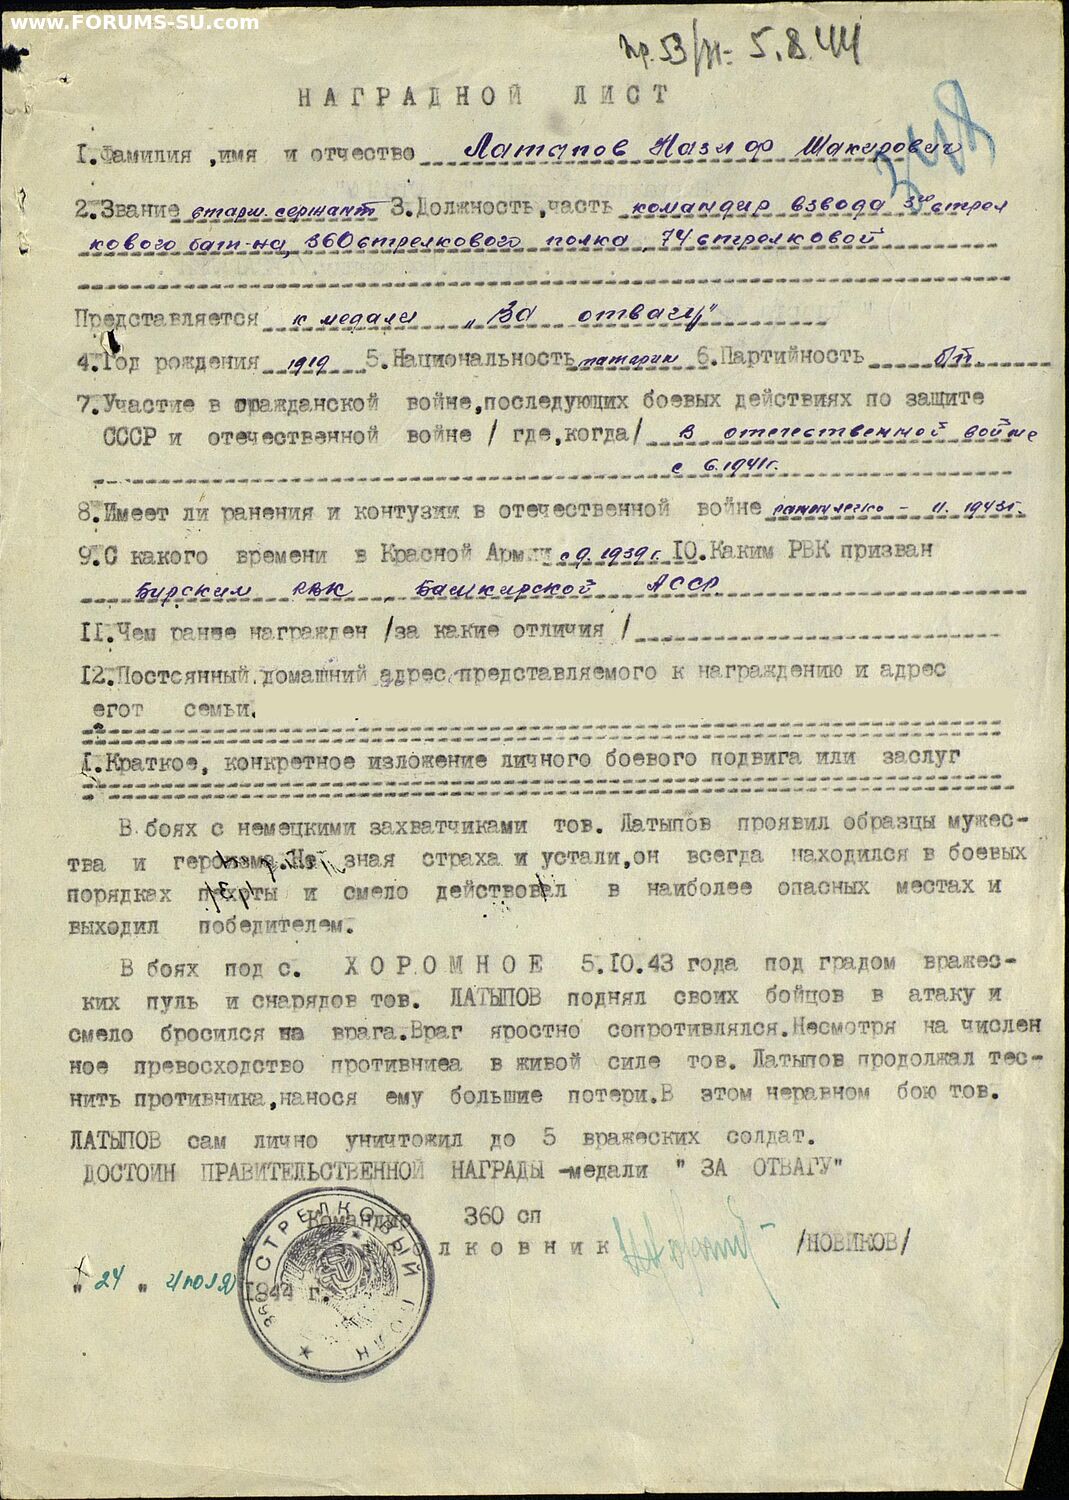 www.FORUMS-SU.com
Пр. 53/н - 5.8.44
НАГРАДНОЙ ЛИСТ
1.Фамилия ,имя и отчество Латыпов Назиф Шакирович
2.Звание старш. сержант 3.Должность,часть командир взвода 3го стрел
кового бат-на, 360 стрелкового полка, 74 стрелковой
Представляется к медали „За отвагу"
4.Год рождения 1919 5.Национальность татарин 6.Партийность б/п.
7.Участие в гражданской войне,последующих боевых действиях по защите
СССР и отечественной войне / где,когда/ в отечественной войне
с 6.1941г.
8.Имеет ли ранения и контузии в отечественной войне ранен легко - 11. 1943г.
9.С какого времени в Красной Армии с 9. 1939 г. 10.Каким РВК призван
Бирским РВК, Башкирской АССР
11.Чем ранее награжден /за какие отличия /
12.Постоянный домашний адрес представляемого к награждению и адрес
егот семьи.
1.Краткое, конкретное изложение личного боевого подвига или заслуг
В боях с немецкими захватчиками тов. Латыпов проявил образцы мужес-
тва и героизма.Не зная страха и устали,он всегда находился в боевых
порядках пехоты и смело действовал в наиболее опасных местах и
выходил победителем.
В боях под с. ХОРОМНОЕ 5.10.43 года под градом вражес-
ких пуль и снарядов тов. ЛАТЫПОВ поднял своих бойцов в атаку и
смело бросился на врага.Враг яростно сопротивлялся.Несмотря на числен
ное превосходство противниеа в живой силе тов. Латыпов продолжал тес-
нить противника,нанося ему большие потери.В этом неравном бою тов.
ЛАТЫПОВ сам лично уничтожил до 5 вражеских солдат.
ДОСТОИН ПРАВИТЕЛЬСТВЕННОЙ НАГРАДЫ -медали " ЗА ОТВАГУ"
Командир 360 сп
олковник /НОВИКОВ/
" 24 " июля 1844 г.
СТРЕЛКОВЫЙ ПОЛК